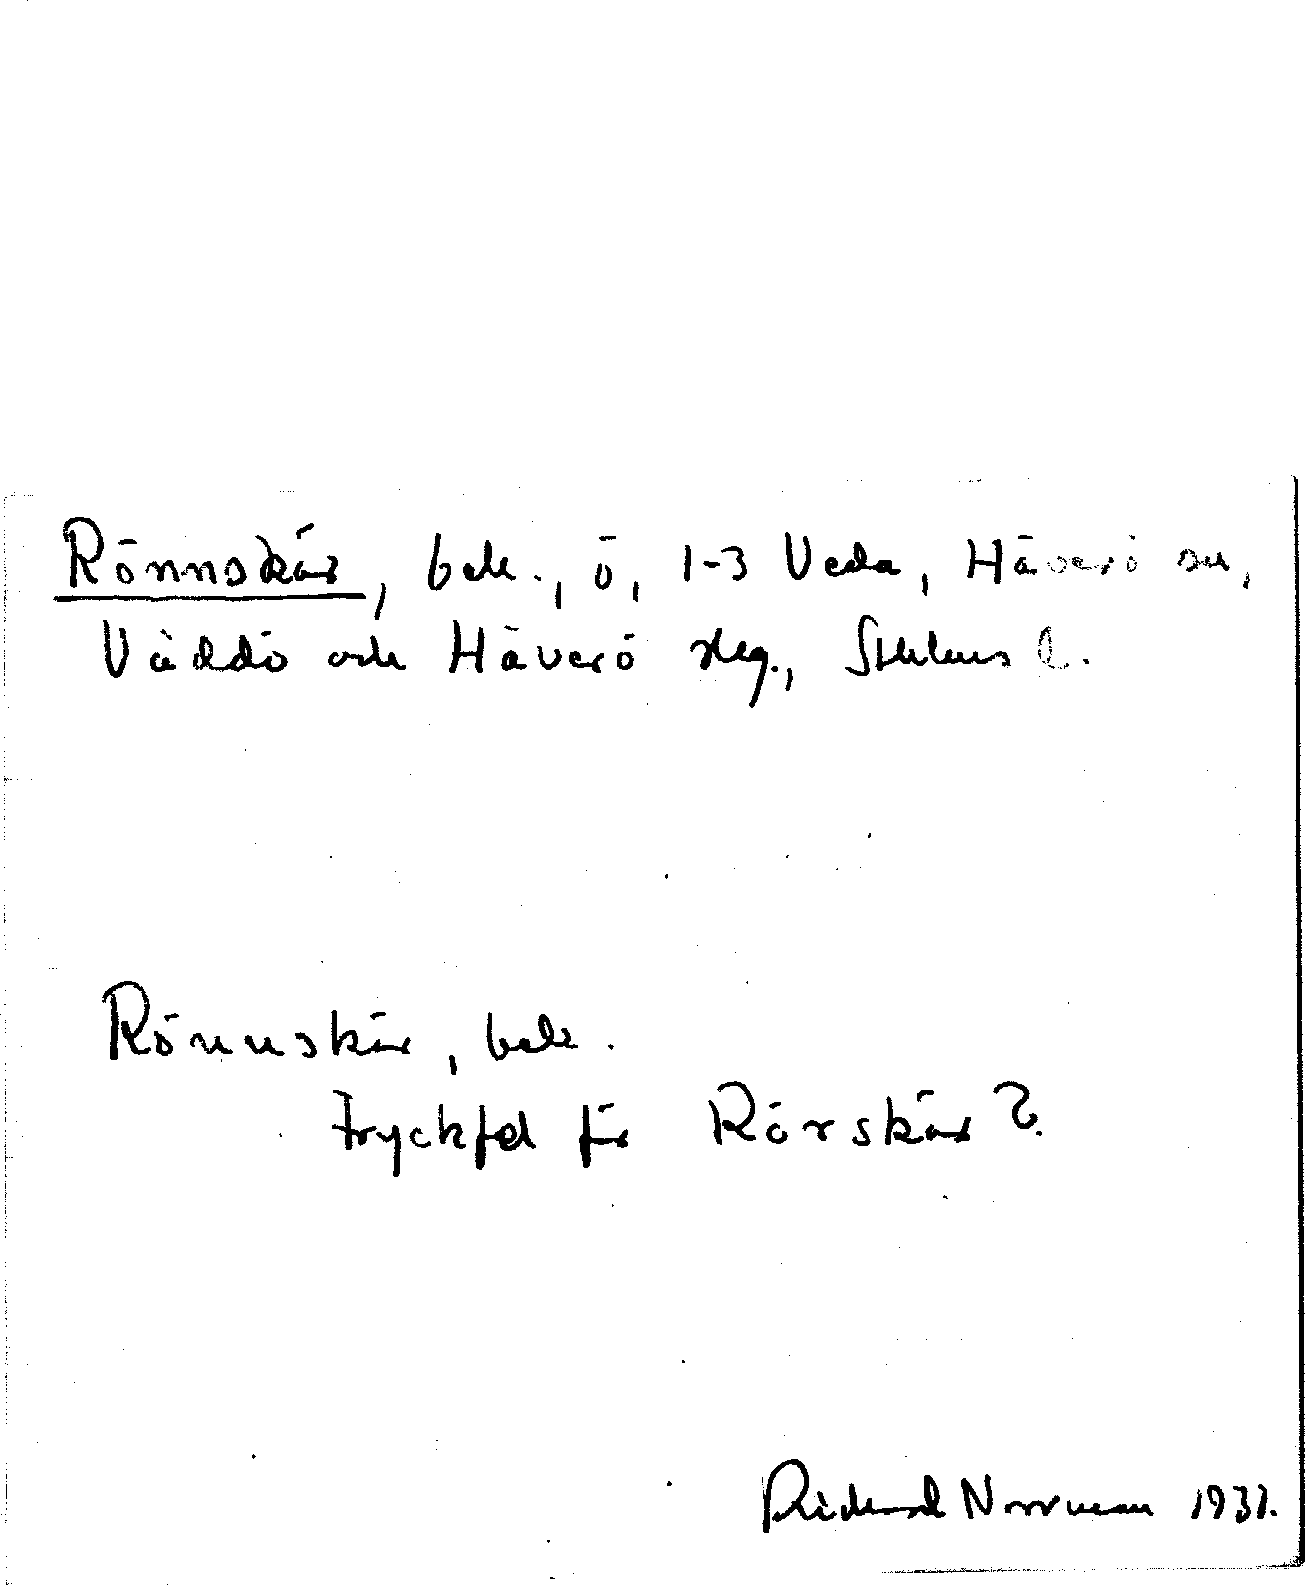 Rönnskär, bek., ö, 1-3 Veda, Häverö sn,
Väddö och Häverö skg., Sthlms l.
Rönnskär, bek.
Tryckfel för Rörskär?
Rickard Norrman 1937.